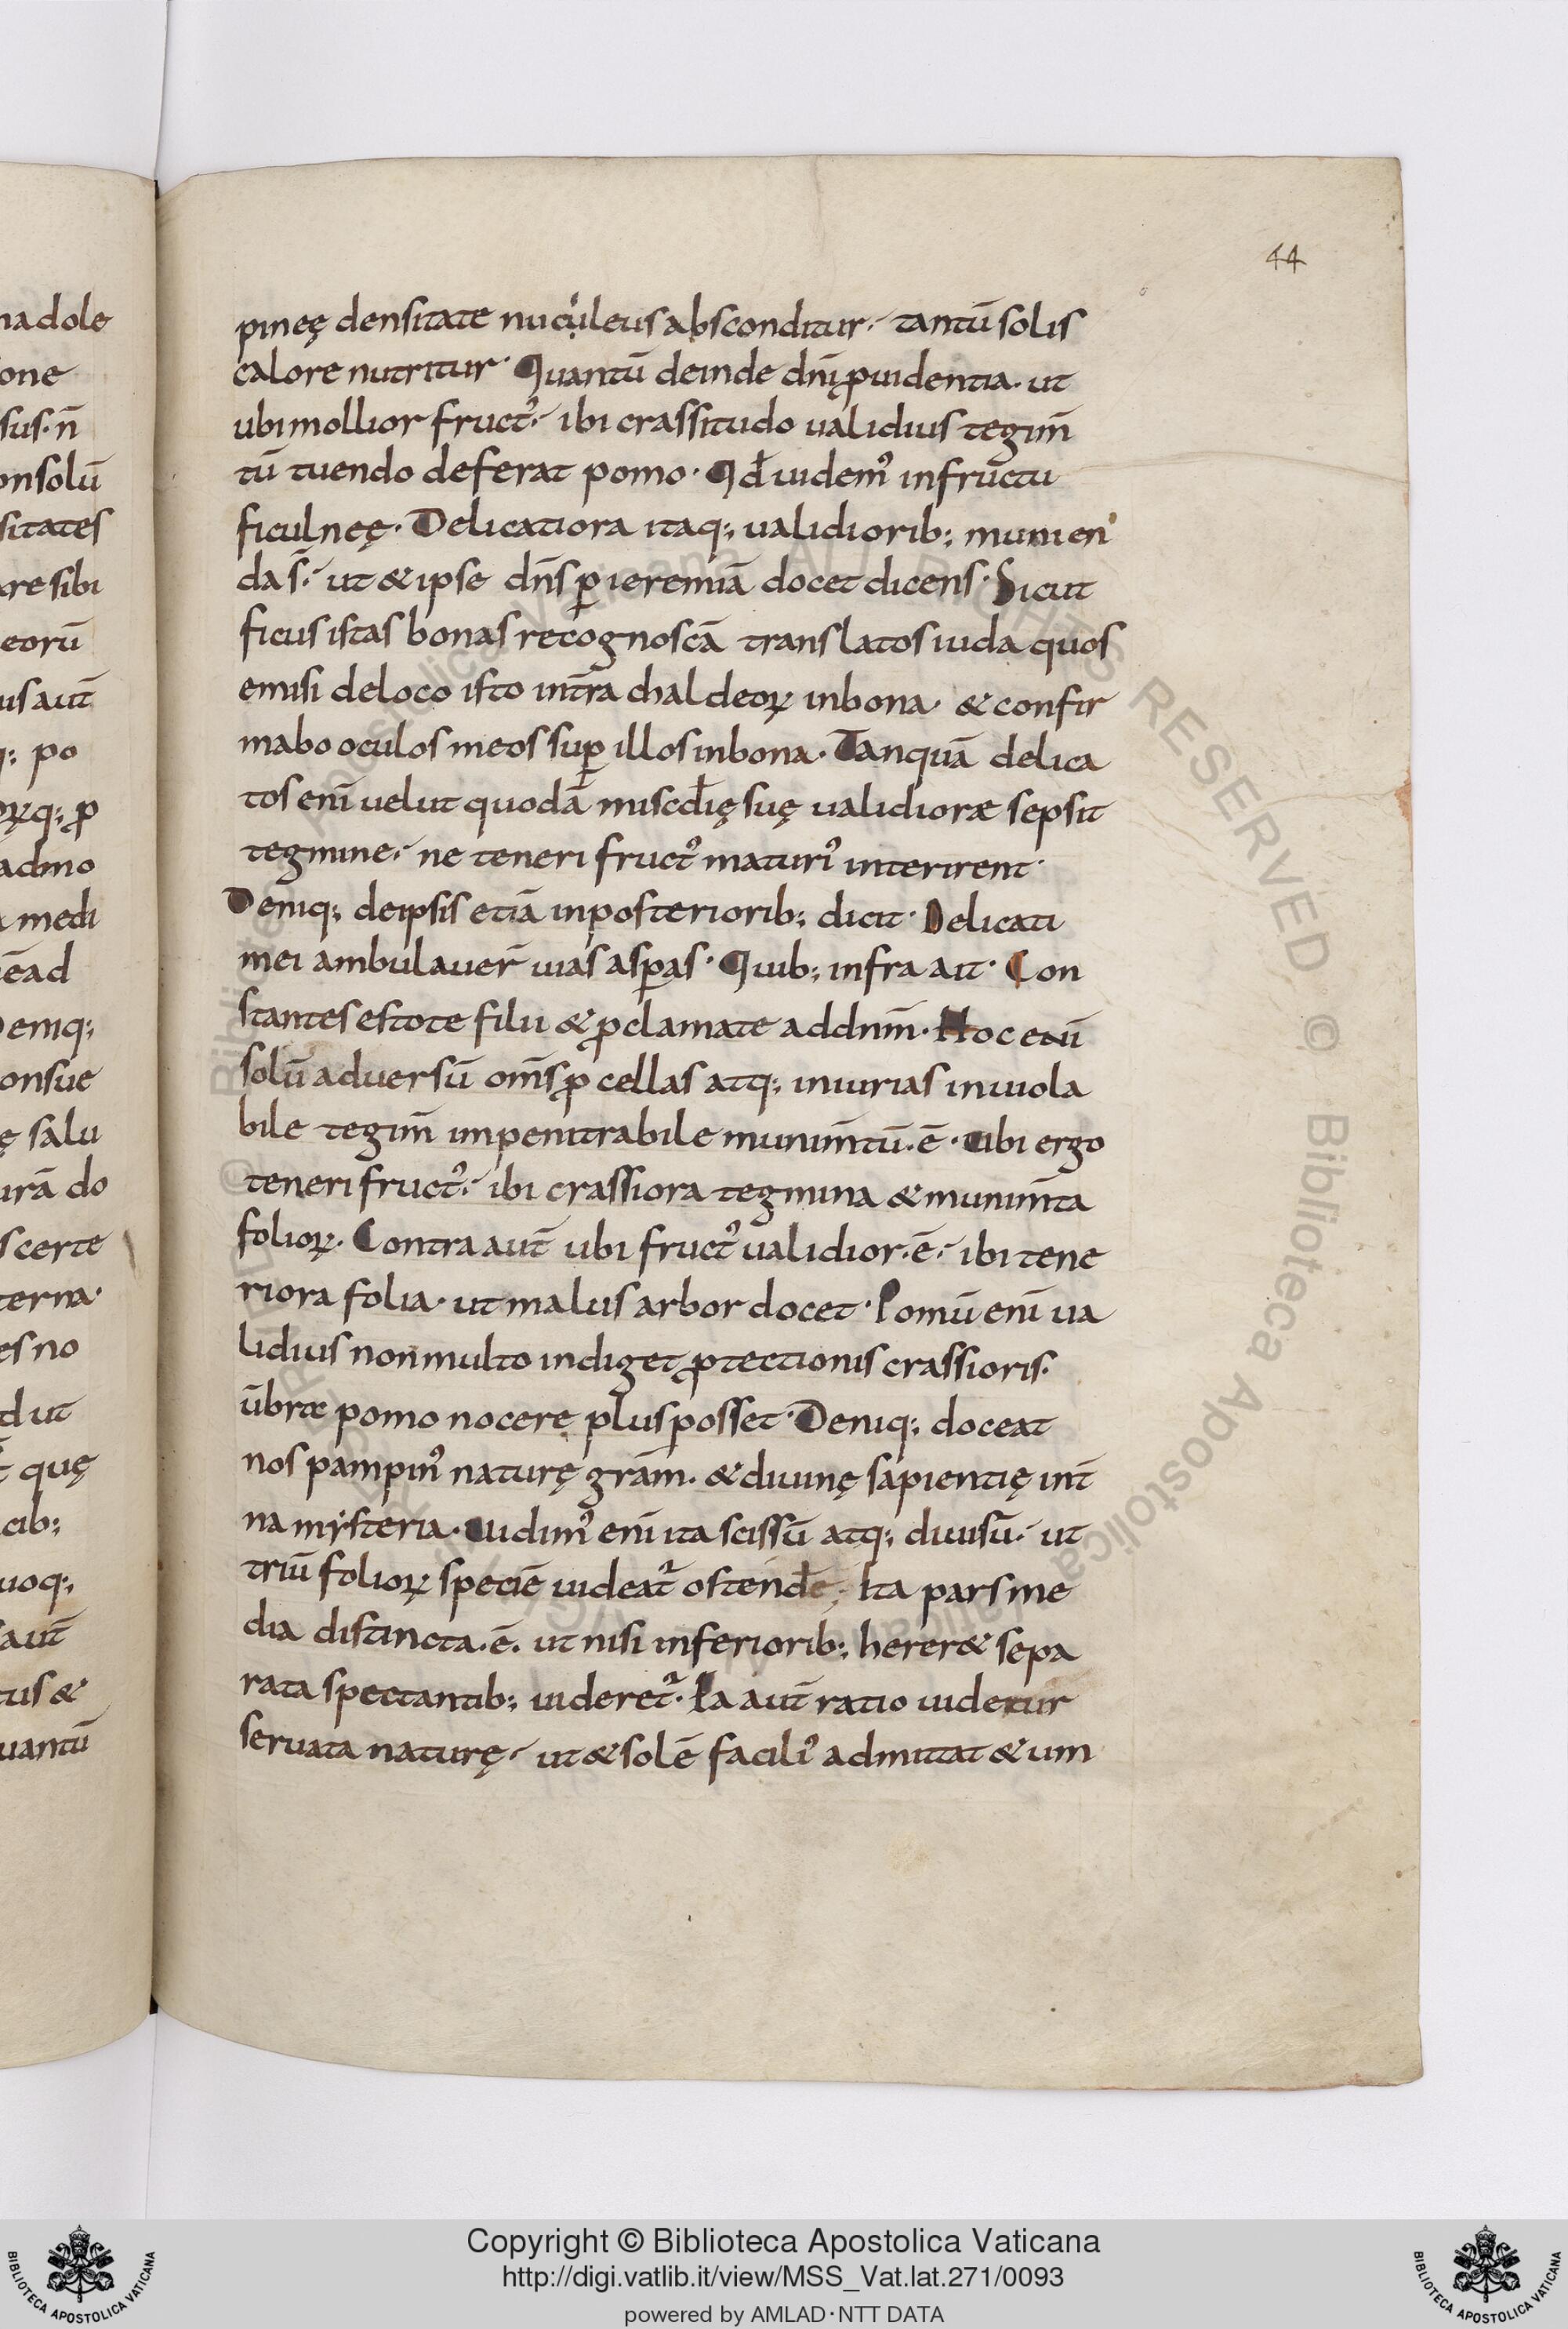 44
pineę densitate nucúleus absconditur· tantū solis
calore nutritur· Quantū deinde dnī ꝓuidentia· ut
ubi mollior fruct᾽· ibi crassitudo ualidius tegim̄
tū tuendo deferat pomo· Qđ uidem᾽ in fructu
ficulneę· Delicatiora itaq; ualidiorib; munien
da s̄· ut & ipse dn̄s ꝑ ieremiā docet dicens· Sicut
ficus istas bonas recognoscā translatos iuda quos
emisi de loco isto int̄ra chaldeoꝝ in bona· & confir
mabo oculos meos suꝑ illos in bona· Tanquā delica
tos enī uelut quodā miscđię suę ualidioræ sepsit
tegmine· ne teneri fruct᾽ maturi᾽ interirent·
Deniq; de ipsis etiā in posteriorib; dicit· Delicati
mei ambulauer̄ uias asꝑas· Quib; infra ait· Con
stantes estote filii & ꝓclamate ad dnm̄· Hoc enī
solū aduersū om̄s ꝓcellas atq; iniurias inuiola
bile tegim̄ impenitrabile munim̄tū·ē· Ubi ergo
teneri fruct᾽· ibi crassiora tegmina & munim̄ta
folioꝝ· Contra aut̄ ubi fruct᾽ ualidior·ē· ibi tene
riora folia· ut malus arbor docet· Pomū enī ua
lidius non multo indiget ꝓtectionis crassioris·
ūbræ pomo nocere plus posset· Deniq; doceat
nos pampin᾽ naturę grām· & diuinę sapientię int̄
na mẏsteria· Uidim᾽ enī ita scissū atq; diuisū· ut
triū folioꝝ speciē uideat᾽ ostendēe; Ita pars me
dia distincta·ē· ut nisi inferiorib; herer& sepa
rata spectantib; uideret᾽· Ea aut̄ ratio uidetur
seruata naturę· ut & solē facili᾽ admittat & um
na dole
one
sus· n̄
on solū
sitates
are sibi
eorū
us aut̄
q; po
oꝝq; ꝓ
admo
medi
ēad
Deniq;
onsue
ę salu
urā do
s certe
terna·
es no
d ut
quę
cib;
uoq;
aut̄
tus &
uantū
Copyright © Biblioteca Apostolica Vaticana
http://digi.vatlib.it/view/MSS_Vat.lat.271/0093
powered by AMLAD·NTT DATA
BIBLIOTECA APOSTOLICA VATICANA
BIBLIOTECA APOSTOLICA VATICANA